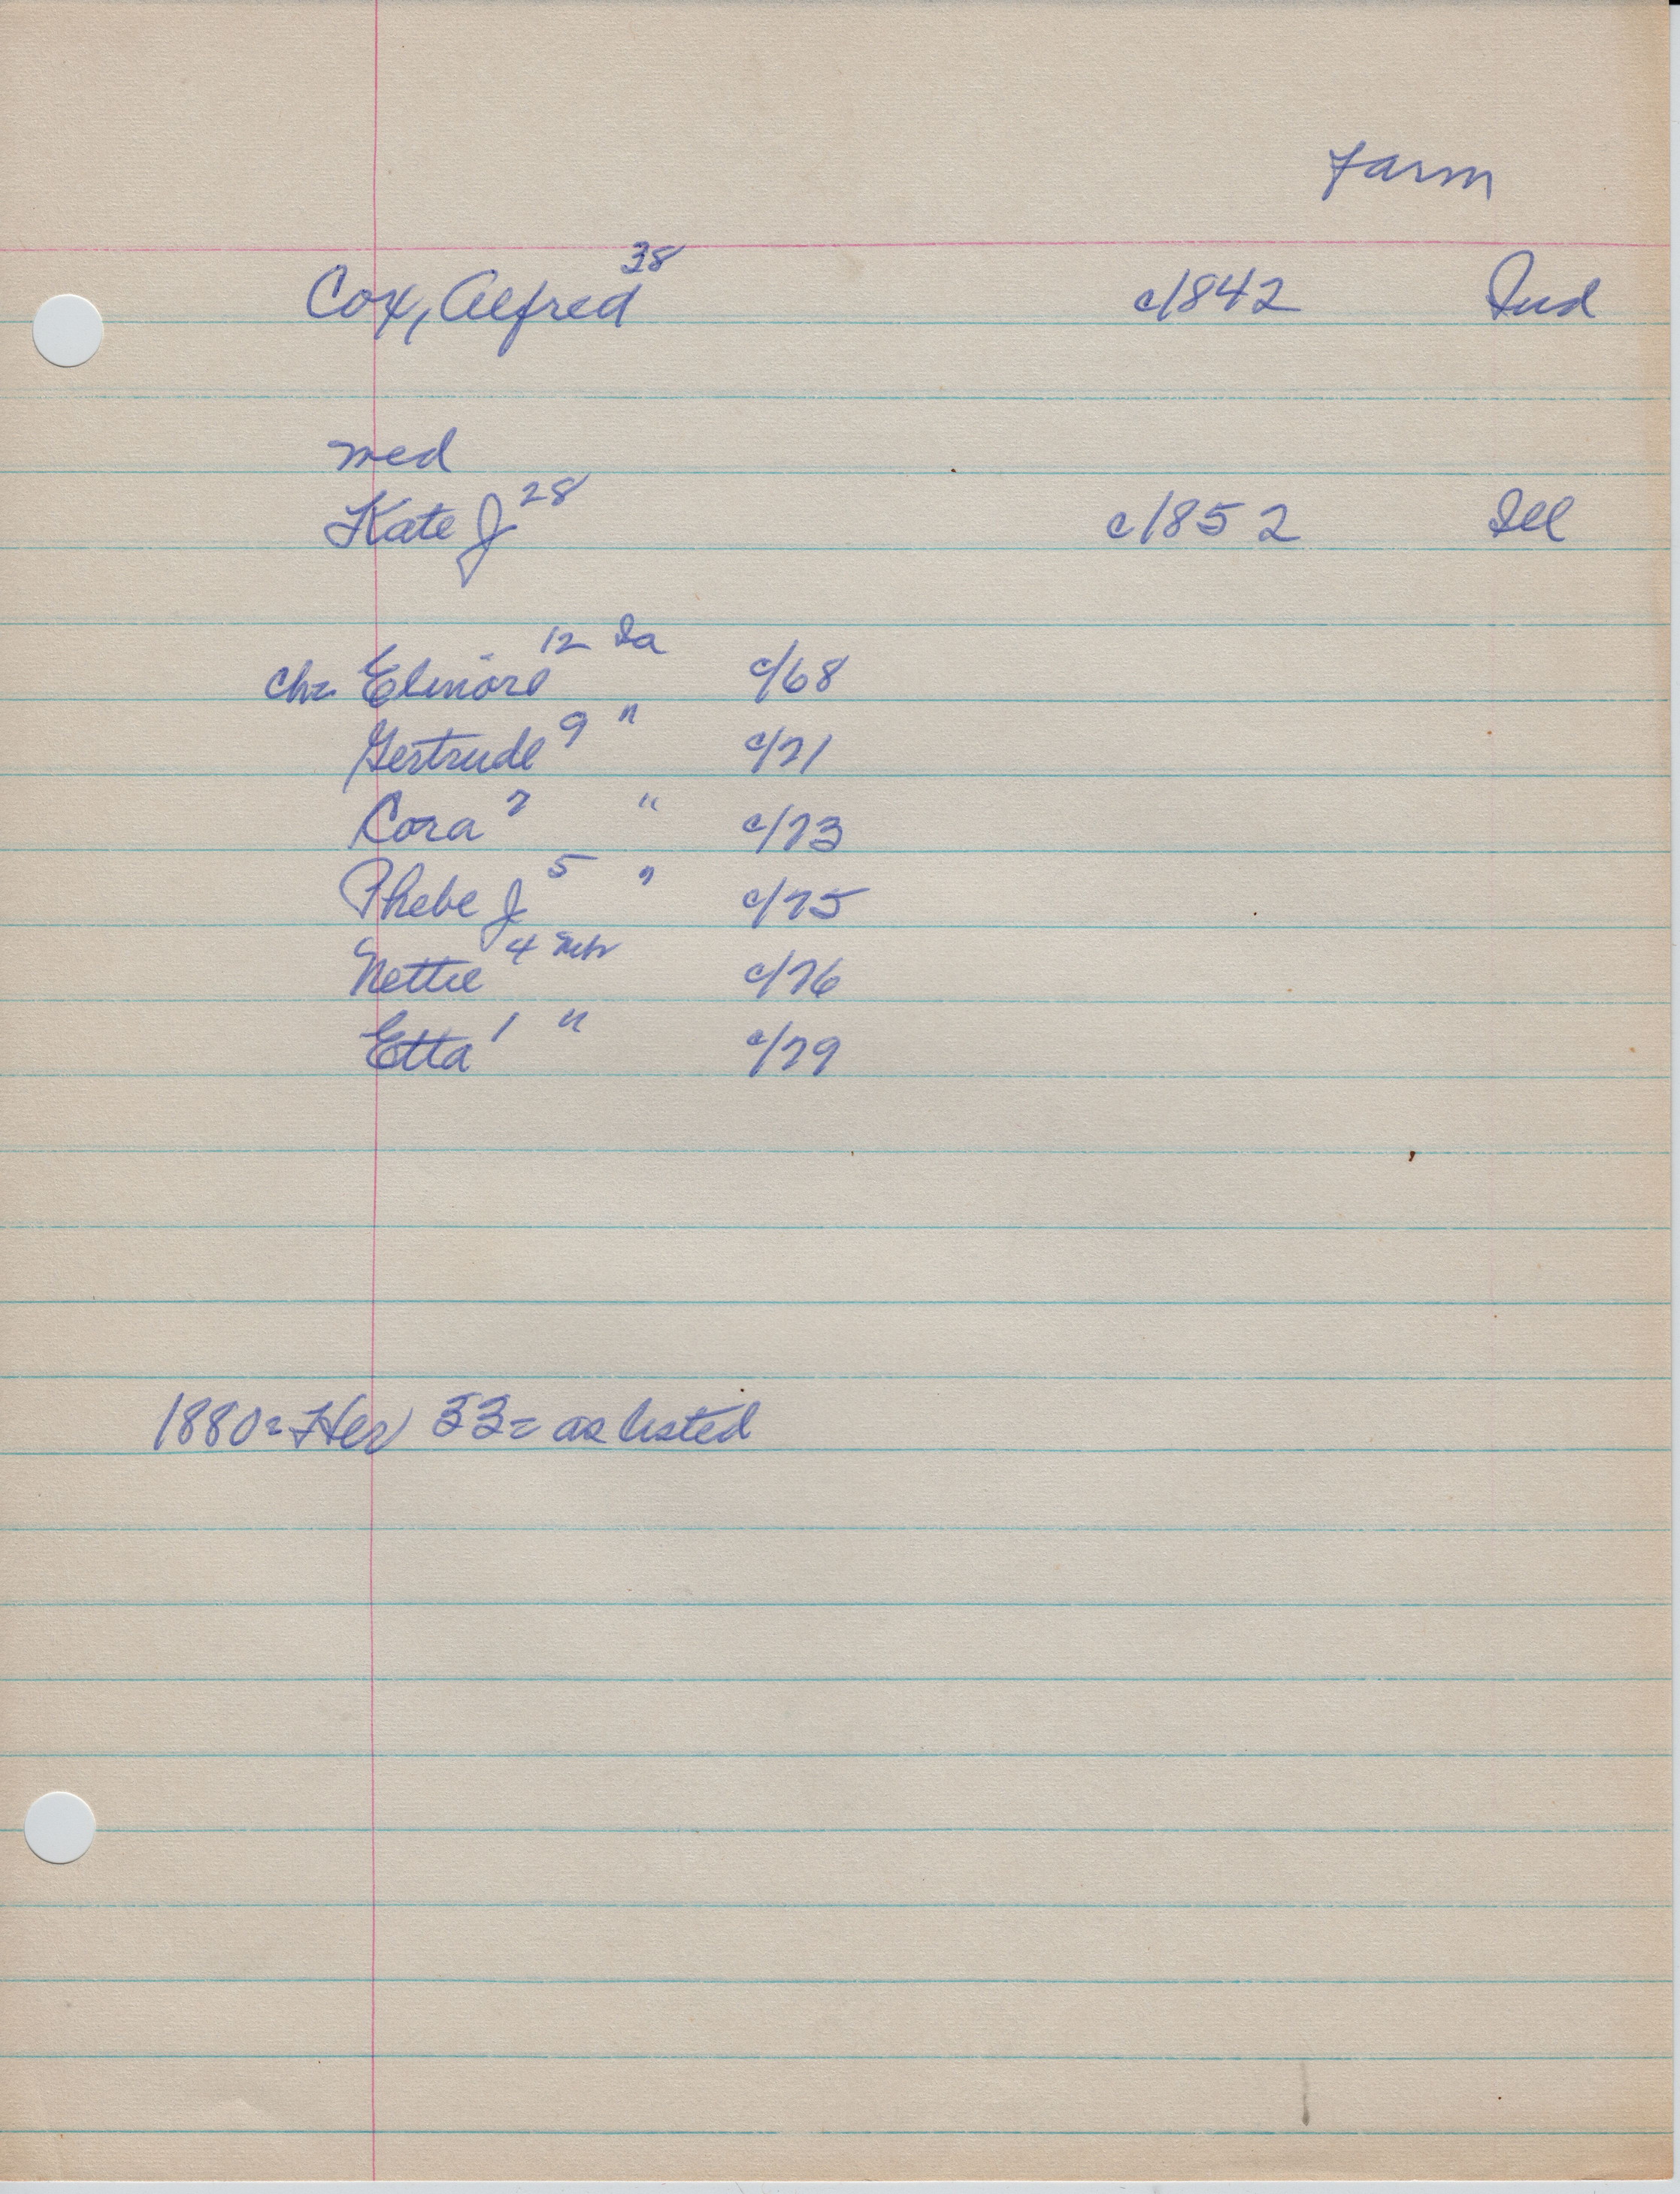 Farm
Cox, Alfred 38 c/1842 Ind
med
Kate J 28 c/1852 Ill
ch= Elinore 12 Ia c/68
Gertrude 9 " c/71
Cora 7 " c/73
Phebe J 5 " c/75
Nettie 4 c/76
Etta 1 " c/79
1880= Her 33= as listed